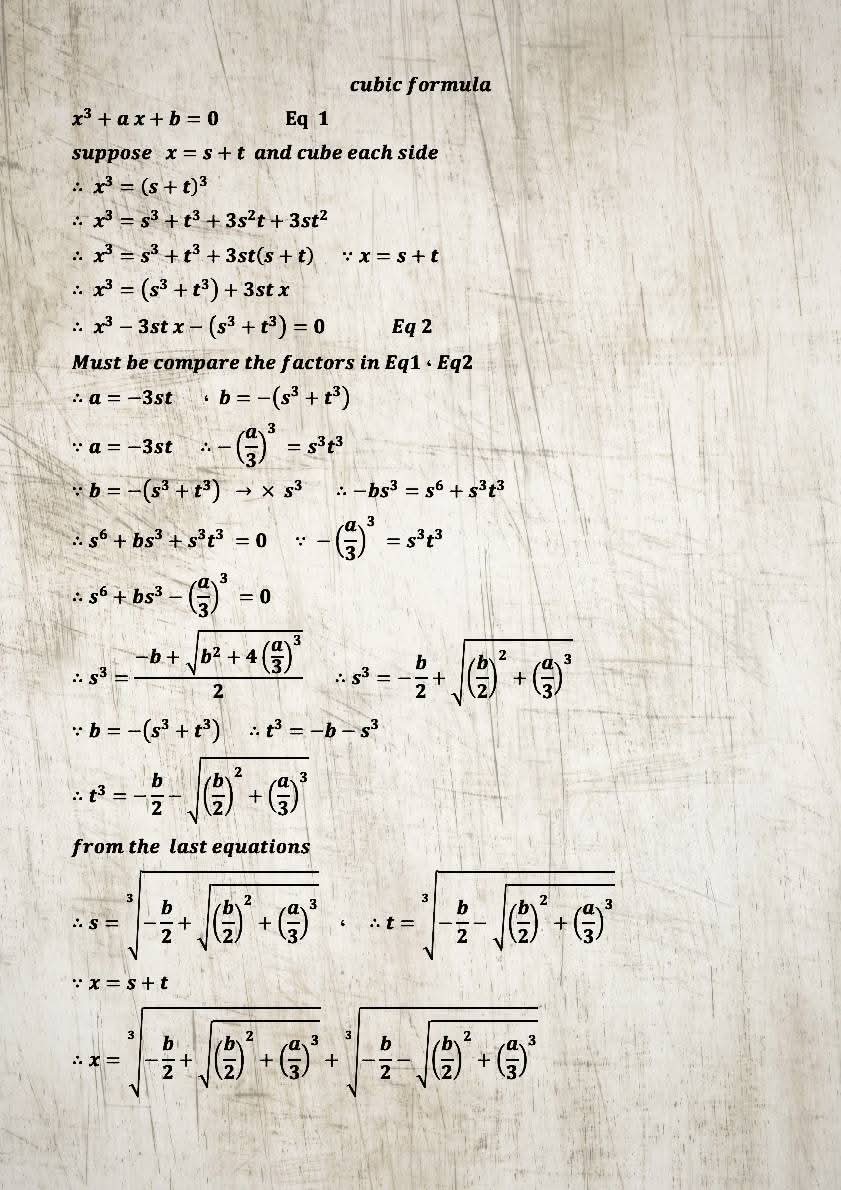 cubic formula
x³ + a x + b = 0 Eq 1
suppose x = s + t and cube each side
∴ x³ = (s + t)³
∴ x³ = s³ + t³ + 3s²t + 3st²
∴ x³ = s³ + t³ + 3st(s + t) ∵ x = s + t
∴ x³ = (s³ + t³) + 3st x
∴ x³ − 3st x − (s³ + t³) = 0 Eq 2
Must be compare the factors in Eq1 ، Eq2
∴ a = −3st ، b = −(s³ + t³)
∵ a = −3st ∴ −(a/3)³ = s³t³
∵ b = −(s³ + t³) → × s³ ∴ −bs³ = s⁶ + s³t³
∴ s⁶ + bs³ + s³t³ = 0 ∵ −(a/3)³ = s³t³
∴ s⁶ + bs³ − (a/3)³ = 0
∴ s³ = (−b + √(b² + 4(a/3)³))/2 ∴ s³ = −b/2 + √((b/2)² + (a/3)³)
∵ b = −(s³ + t³) ∴ t³ = −b − s³
∴ t³ = −b/2 − √((b/2)² + (a/3)³)
from the last equations
∴ s = ∛(−b/2 + √((b/2)² + (a/3)³)) ، ∴ t = ∛(−b/2 − √((b/2)² + (a/3)³))
∵ x = s + t
∴ x = ∛(−b/2 + √((b/2)² + (a/3)³)) + ∛(−b/2 − √((b/2)² + (a/3)³))